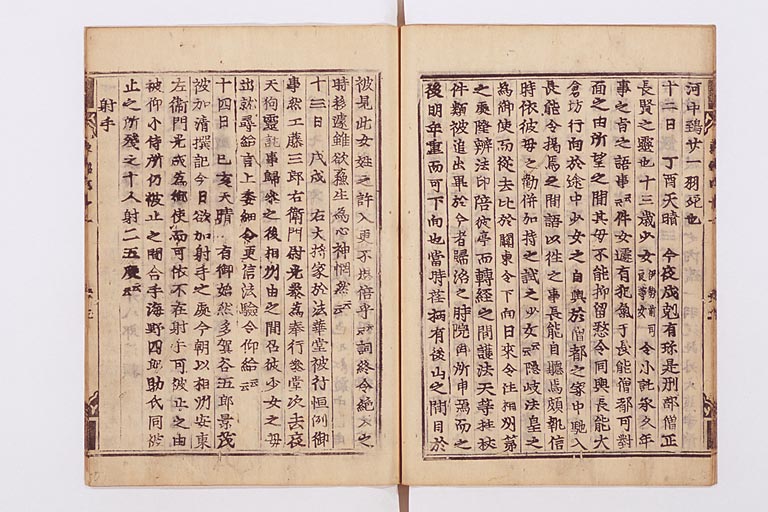 河中鵄廿一羽死也
十二日 丁酉天晴 今夜戌剋有珎是刑部僧正
長賢之靈也十三歳少女伊勢前司之孫女令小託承久年
事之肯之語事云件女還有犯氣于長能僧都可對
面之由所望之間其母不能抑留愁令同輿長能大
倉坊行向於途中少女之自輿於僧都之家中馳入
長能令揖馬之間語以往之事長能自聴馬頗執信
時依彼母之勸併加持之試之少女云隱岐法皇之
為御使而從去比於關東令下向日来令住相州第
之乘隆辨法印陪從亭而轉経之間護法天等推
件類被追出畢於今者歸洛之時尅由所申焉而之
後明年重而可下向也當時柄有後山之間目於
被見此女姓之許入更不堪倍乎詞終令絶入之
時移遽雖欲蘓生為心神惘然云
十三日 戊戌 右大将家於法華堂被行恒例御
事然工藤三郎右衛門尉光衆為奉行參堂次去夜
天狗靈託事歸之後相州由之間召彼少女之母
出就尋給言上委細令更信法驗令仰給云
十四日 己亥天晴 有御始然多賀谷五郎景茂
被加清撰記今日欲加射手之處今朝以相州安東
左衛門光成為御使而可依不在射手可被止之由
被仰小侍所仍彼止之間合手海野四郎助氏同被
止之所殘之十人射二五度云
射手